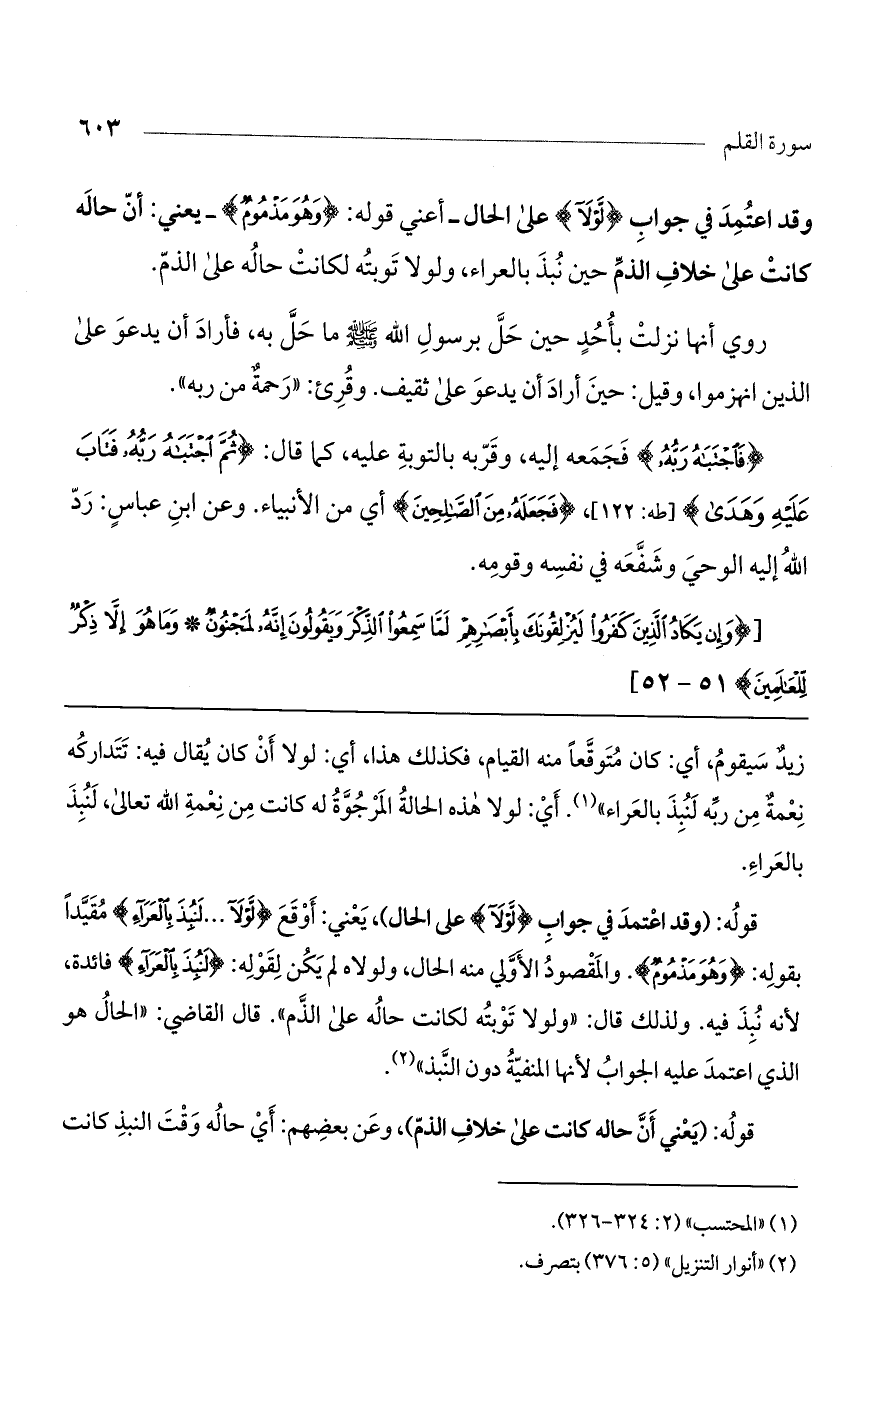 سورة القلم ٦٠٣
وقد اعتُمِدَ في جوابِ ﴿لَّوْلَآ﴾ علىٰ الحال ـ أعني قوله: ﴿وَهُوَ مَذْمُومٌ﴾ ـ يعني: أنّ حالَه
كانتْ علىٰ خلافِ الذمِّ حين نُبذَ بالعراء، ولولا تَوبتُه لكانتْ حالُه علىٰ الذمّ.
روي أنها نزلتْ بأُحُدٍ حين حَلَّ برسولِ الله ﷺ ما حَلَّ به، فأرادَ أن يدعوَ علىٰ
الذين انهزموا، وقيل: حينَ أرادَ أن يدعوَ علىٰ ثقيف. وقُرِئ: «رَحمةٌ من ربه».
﴿فَٱجْتَبَٰهُ رَبُّهُۥ﴾ فَجَمَعه إليه، وقَرّبه بالتوبةِ عليه، كما قال: ﴿ثُمَّ ٱجْتَبَٰهُ رَبُّهُۥ فَتَابَ
عَلَيْهِ وَهَدَىٰ﴾ [طه: ١٢٢]، ﴿فَجَعَلَهُۥ مِنَ ٱلصَّٰلِحِينَ﴾ أي من الأنبياء. وعن ابنِ عباسٍ: رَدّ
اللهُ إليه الوحيَ وشفَّعَه في نفسِه وقومِه.
[﴿وَإِن يَكَادُ ٱلَّذِينَ كَفَرُوا۟ لَيُزْلِقُونَكَ بِأَبْصَٰرِهِمْ لَمَّا سَمِعُوا۟ ٱلذِّكْرَ وَيَقُولُونَ إِنَّهُۥ لَمَجْنُونٌ * وَمَا هُوَ إِلَّا ذِكْرٌ
لِّلْعَٰلَمِينَ﴾ ٥١ - ٥٢]
زيدٌ سَيقومُ، أي: كان مُتَوقَّعاً منه القيام، فكذلك هذا، أي: لولا أَنْ كان يُقال فيه: تَتَداركُه
نِعْمةٌ مِن ربِّه لَنُبِذَ بالعَراء»(١). أَيْ: لولا هٰذه الحالةُ المَرْجُوَّةُ له كانت مِن نِعْمةِ الله تعالىٰ، لَنُبِذَ
بالعَراءِ.
قولُه: (وقد اعْتمدَ في جوابِ ﴿لَّوْلَآ﴾ على الحال)، يَعْني: أَوْقَعَ ﴿لَّوْلَآ ...لَنُبِذَ بِٱلْعَرَآءِ﴾ مُقيَّداً
بقولِه: ﴿وَهُوَ مَذْمُومٌ﴾. والمَقْصودُ الأوَّلي منه الحال، ولولاه لم يَكُن لِقَوْلِه: ﴿لَنُبِذَ بِٱلْعَرَآءِ﴾ فائدة،
لأنه نُبِذَ فيه. ولذلك قال: «ولولا تَوْبتُه لكانت حالُه علىٰ الذَّم». قال القاضي: «الحالُ هو
الذي اعتمدَ عليه الجوابُ لأنها المنفيّةُ دون النَّبذ»(٢).
قولُه: (يَعْني أَنَّ حاله كانت علىٰ خلافِ الذمّ)، وعَن بعضِهم: أَيْ حالُه وَقْتَ النبذِ كانت
(١) «المحتسب» (٢: ٣٢٤-٣٢٦).
(٢) «أنوار التنزيل» (٥: ٣٧٦) بتصرف.